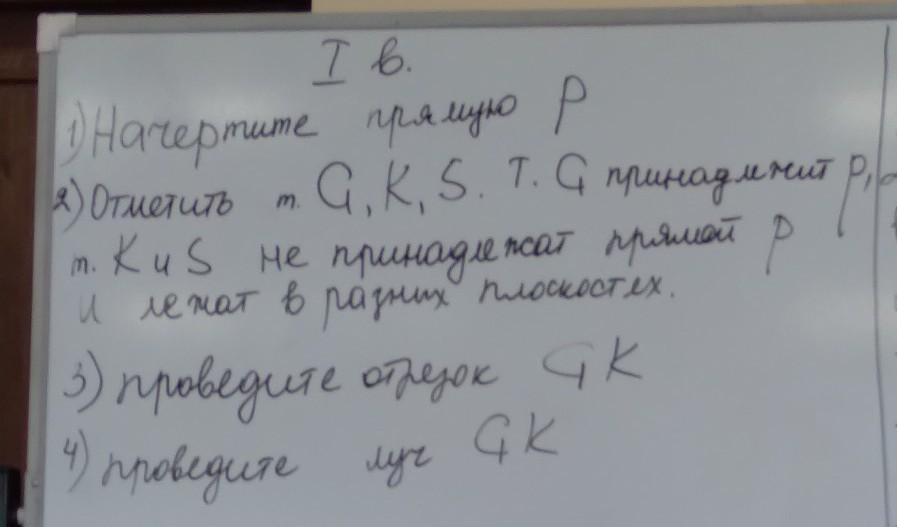 I в.
1) Начертите прямую р
2) Отметить т. G, K, S. Т. G принадлежит р,
т. K и S не принадлежат прямой р
и лежат в разных плоскостях.
3) проведите отрезок GK
4) проведите луч GK